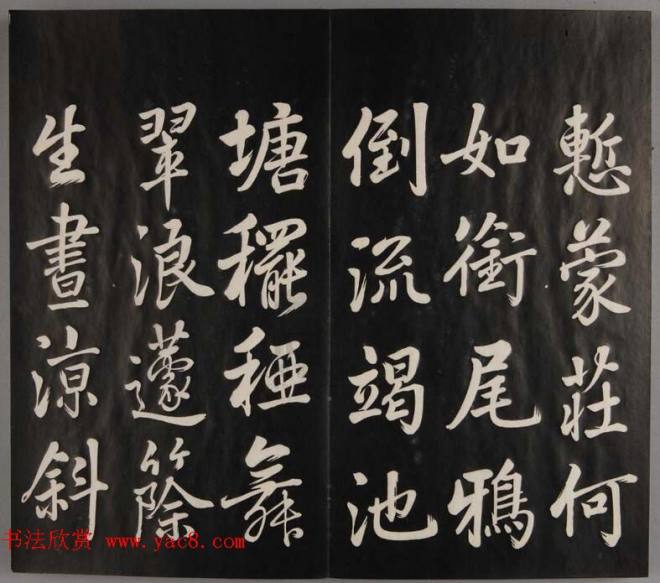 慙蒙莊何
如銜尾鴉
倒流竭池
塘䆉稏舞
翠浪籧篨
生晝涼斜
书法欣赏 www.yac8.com